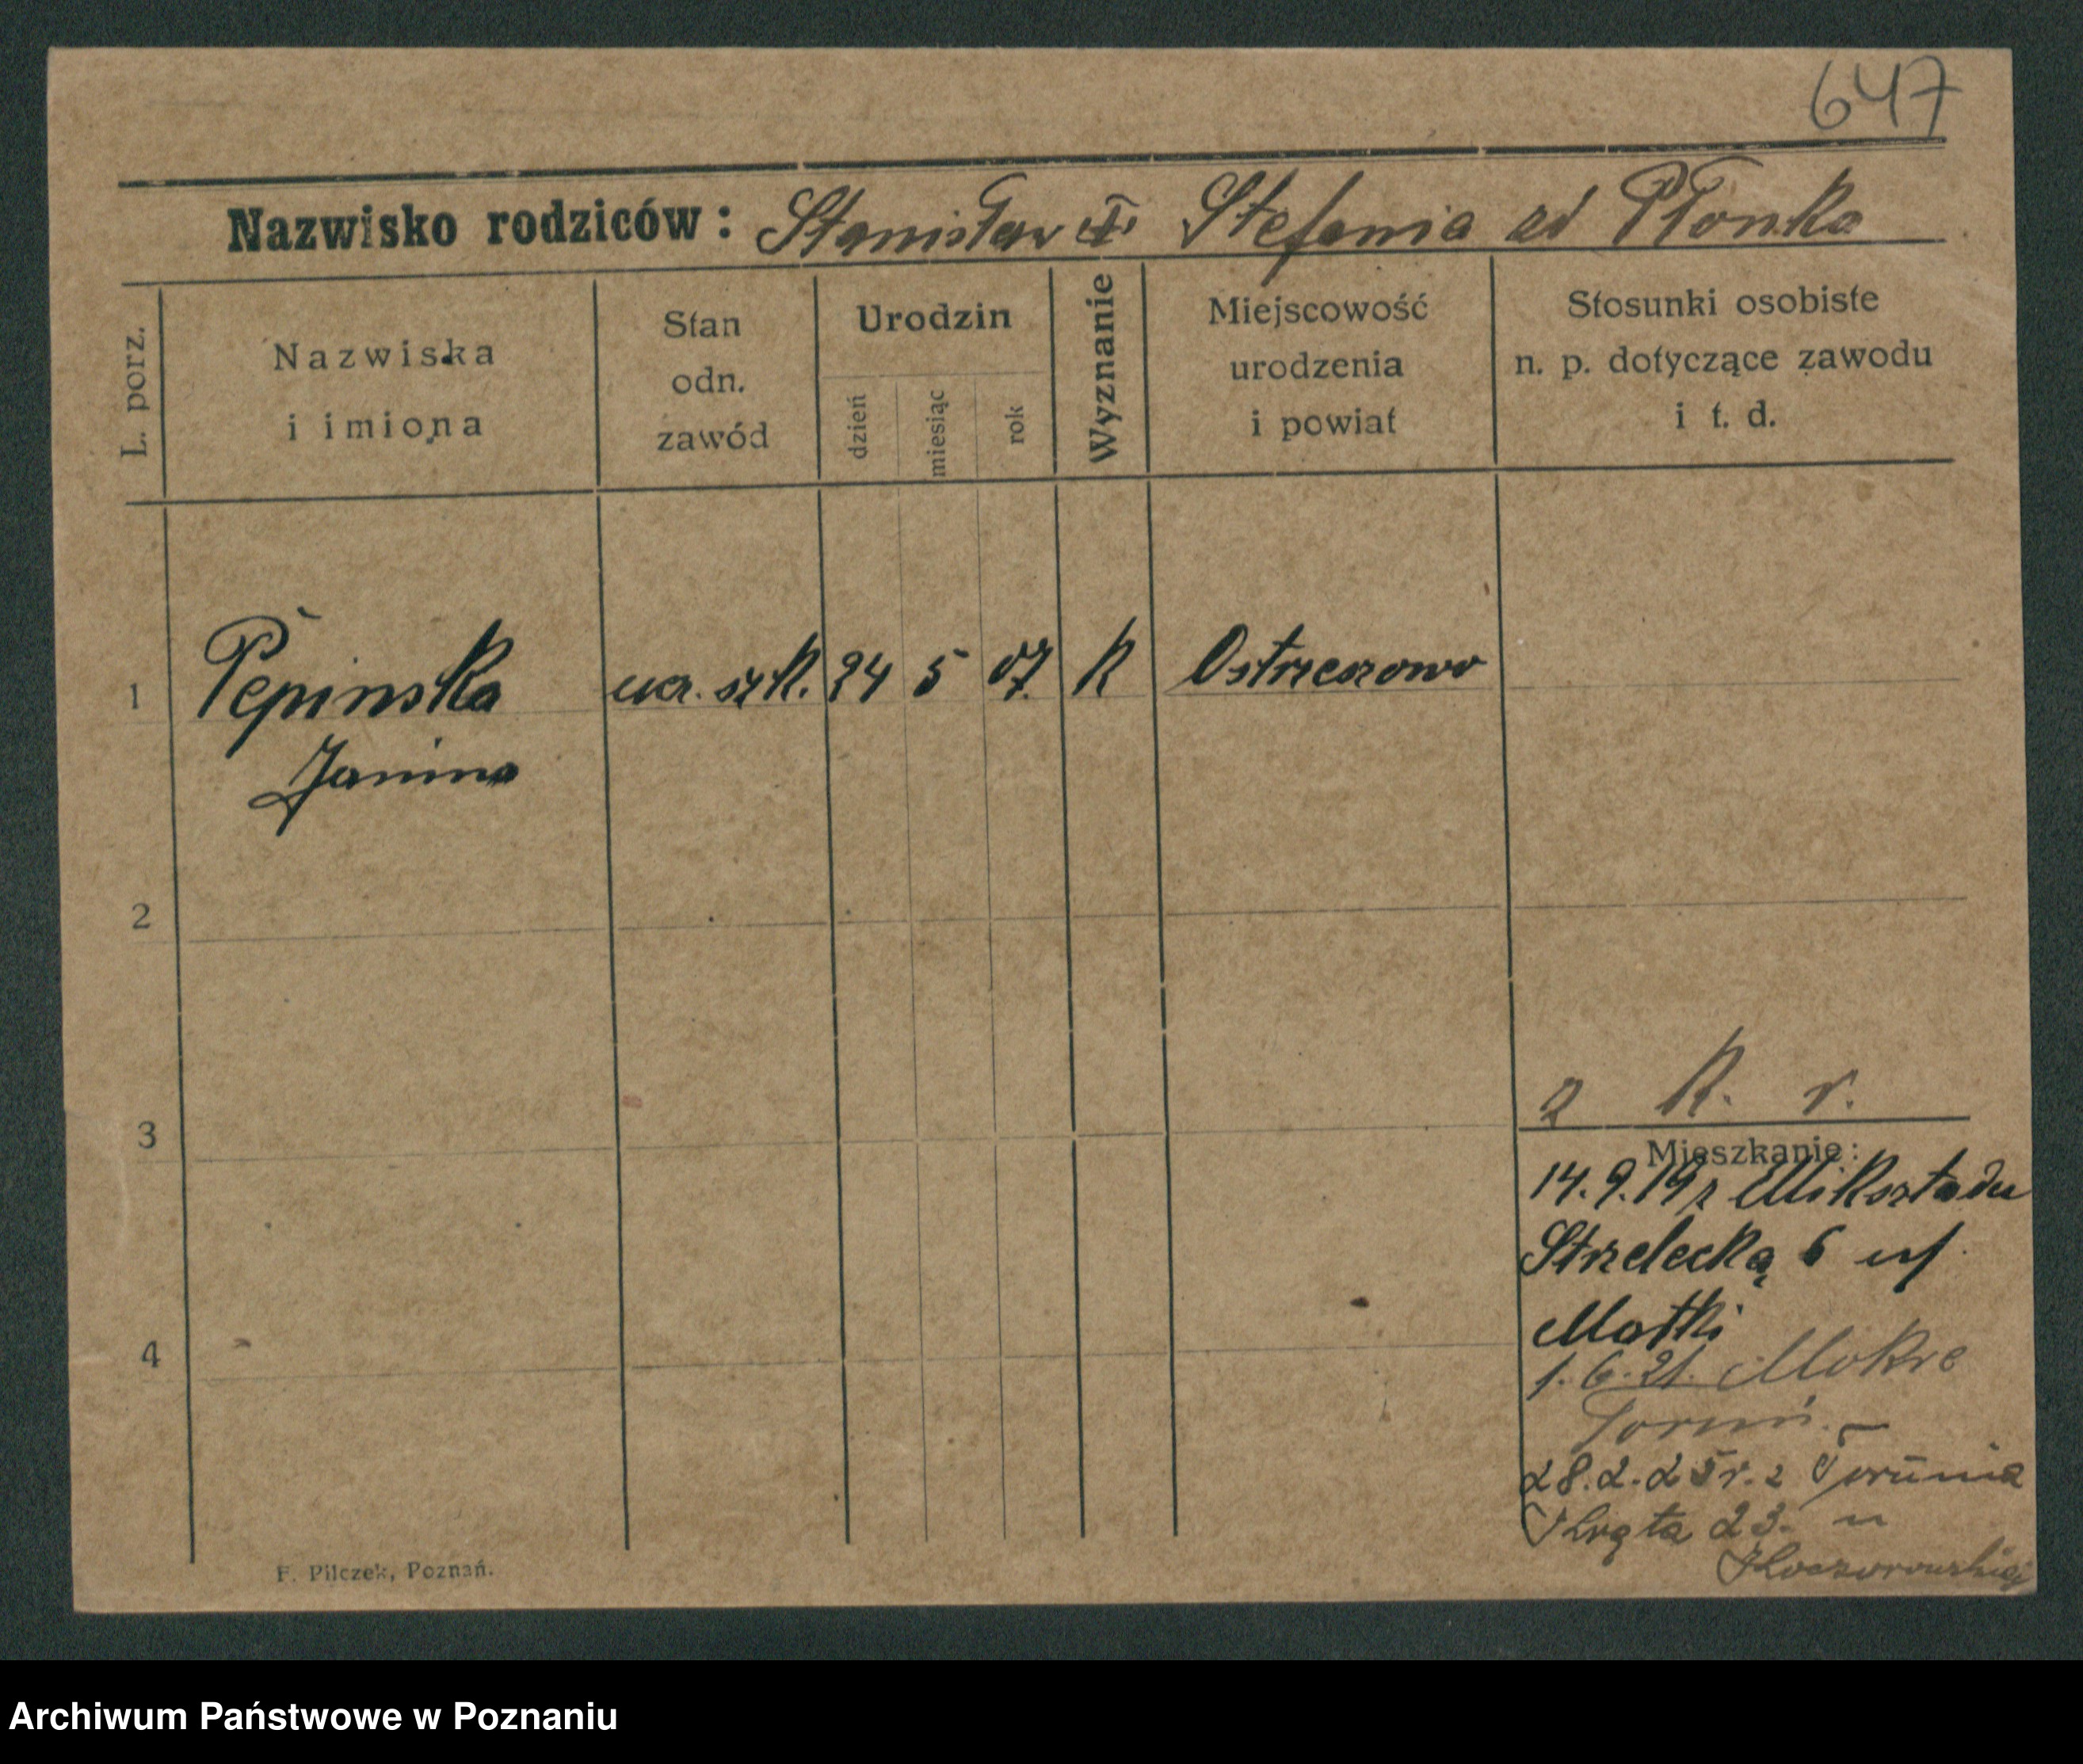 647
Nazwisko rodziców: Stanisław i Stefania zd Płonka
L. porz.
Nazwiska
i imiona
Stan
odn.
zawód
Urodzin
dzień
miesiąc
rok
Wyznanie
Miejscowość
urodzenia
i powiat
Stosunki osobiste
n. p. dotyczące zawodu
i t. d.
1 Pepinska ucz. szk. 24 5 07. K Ostrzeszowo
Janina
2
3
4
2 K. r.
Mieszkanie:
14.9.19 z Miksztadu
Strzelecką 6 u
Matki
1.6.21. Mokre
Toruń. —
28.2.25 r. z Torunia
Kręta 23. u
F. Pilczek, Poznań.
Archiwum Państwowe w Poznaniu